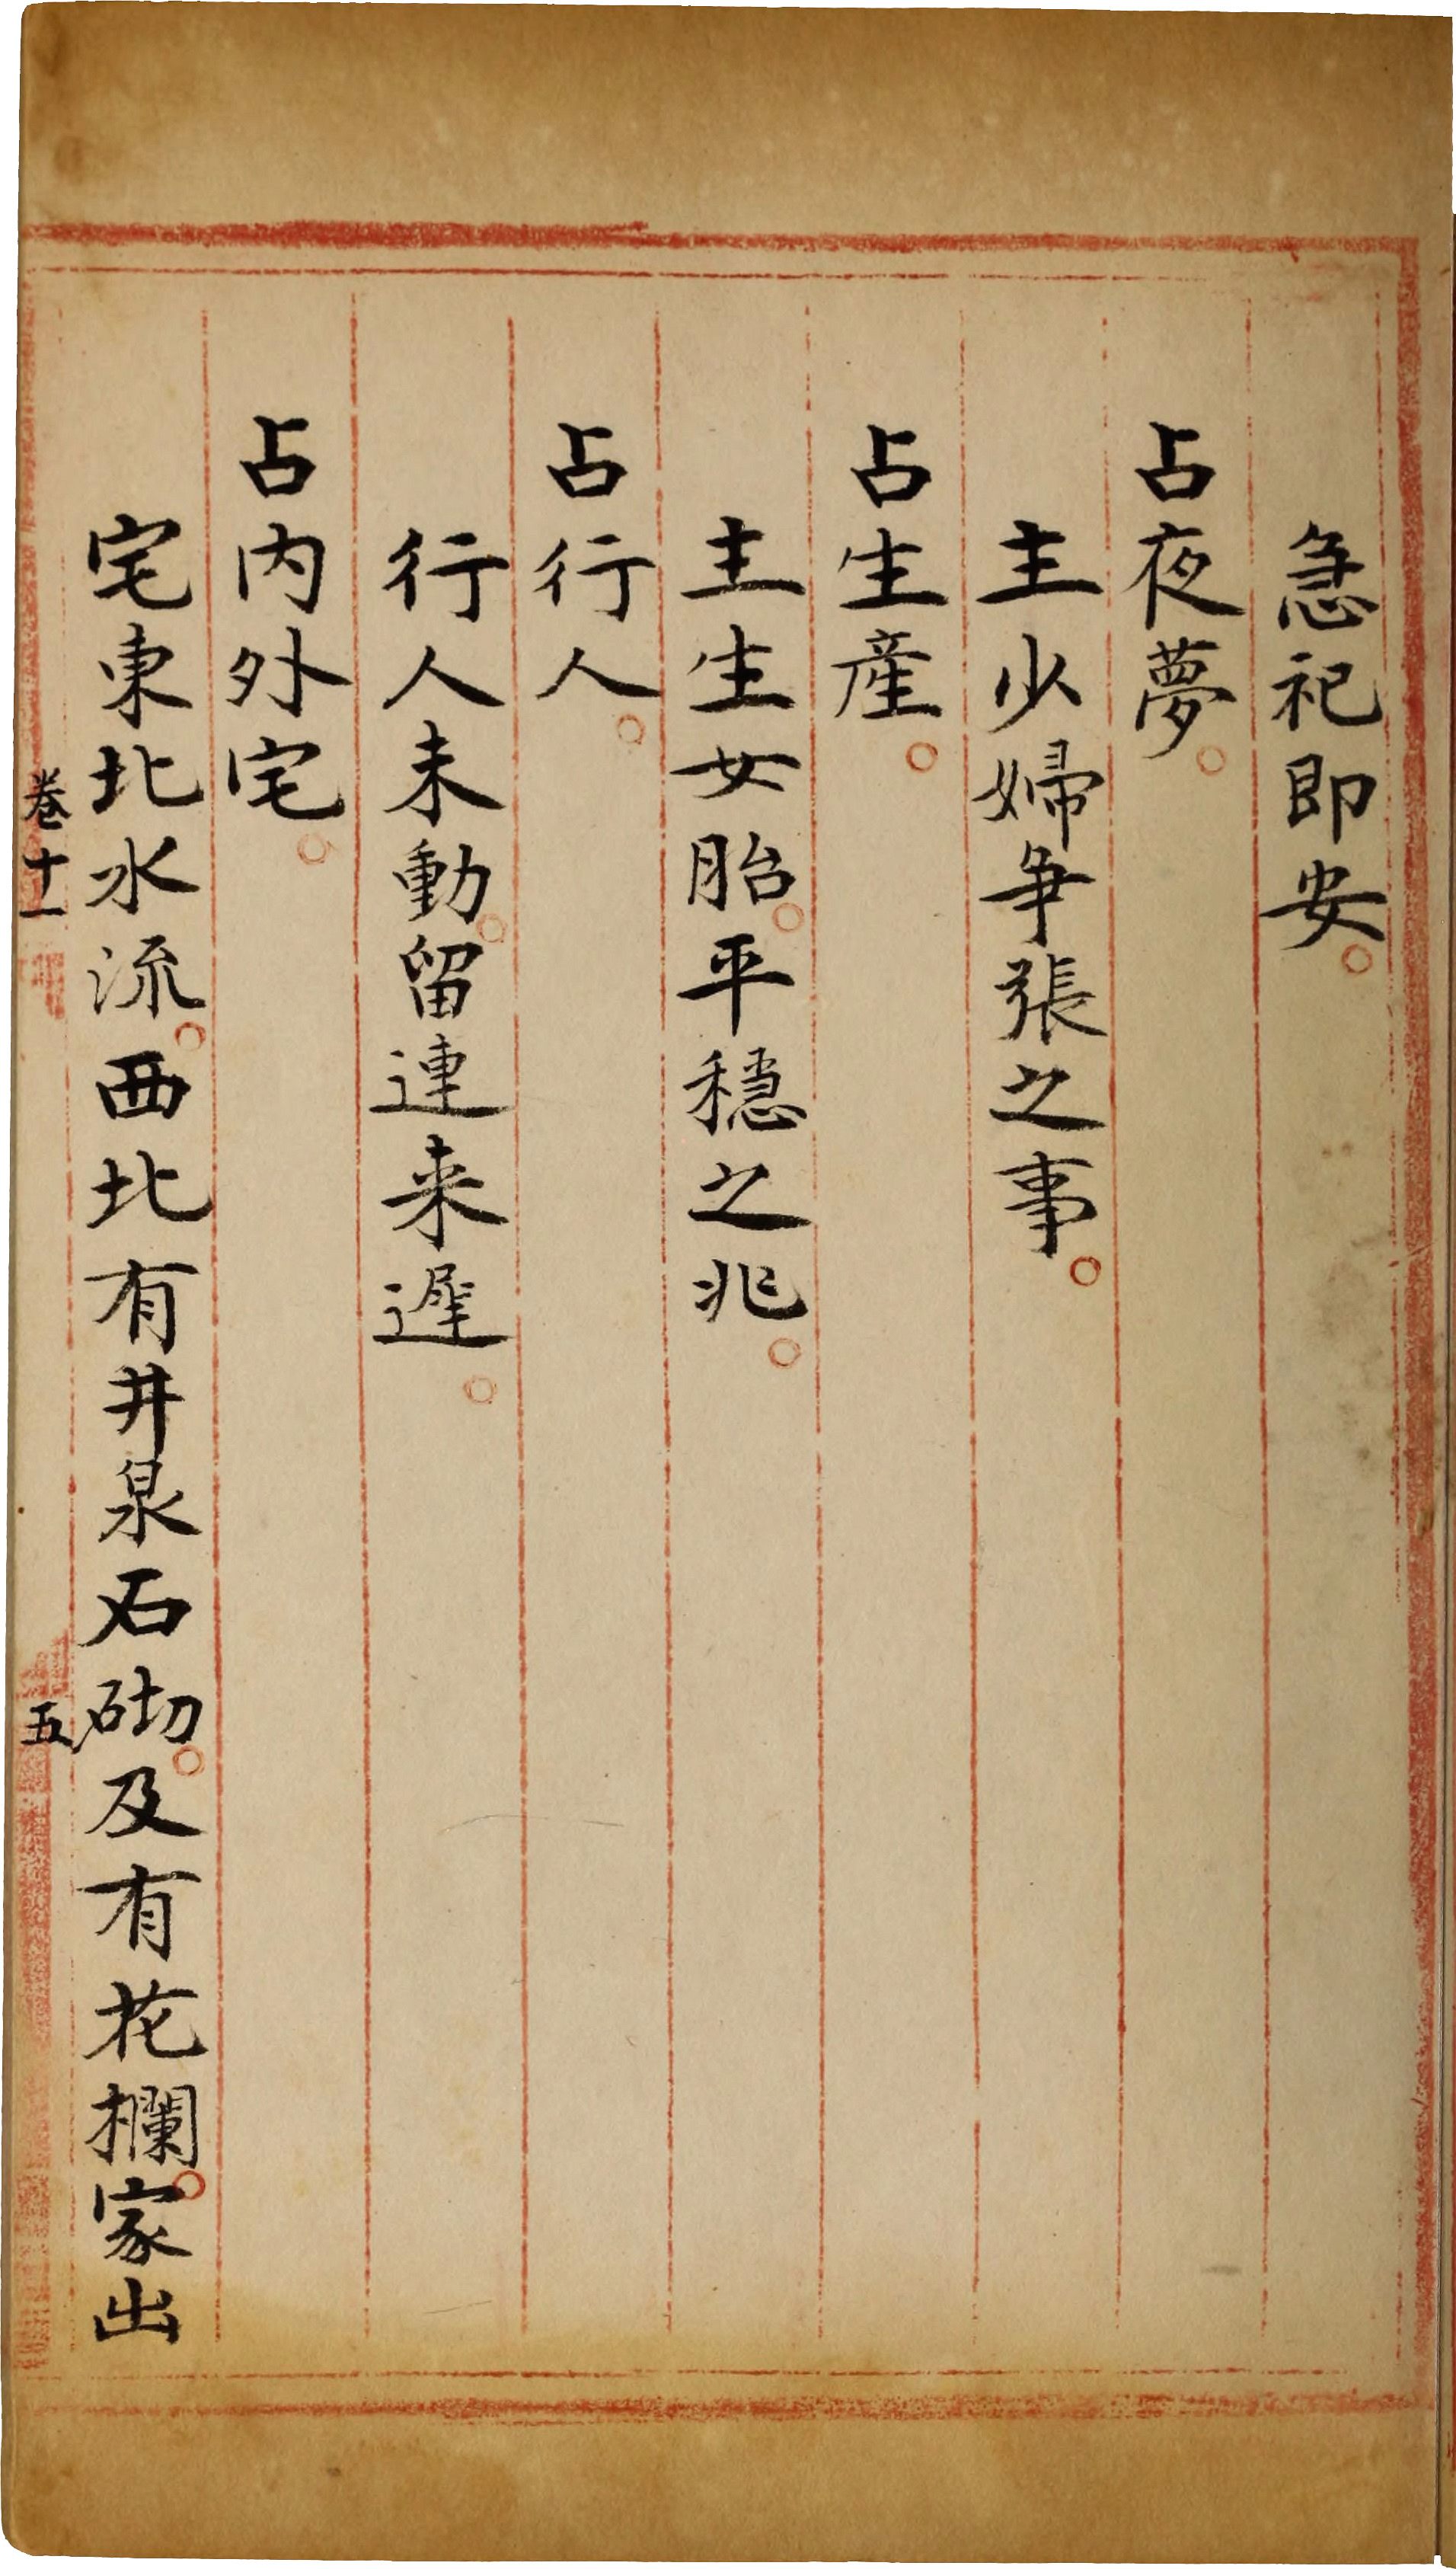 急祀即安。
占夜夢。
主少婦爭張之事。
占生產。
主生女胎。平穩之兆。
占行人。
行人未動。留連来遲。
占內外宅。
宅東北水流。西北有井泉石砌。及有花欄。家出
卷十一
五